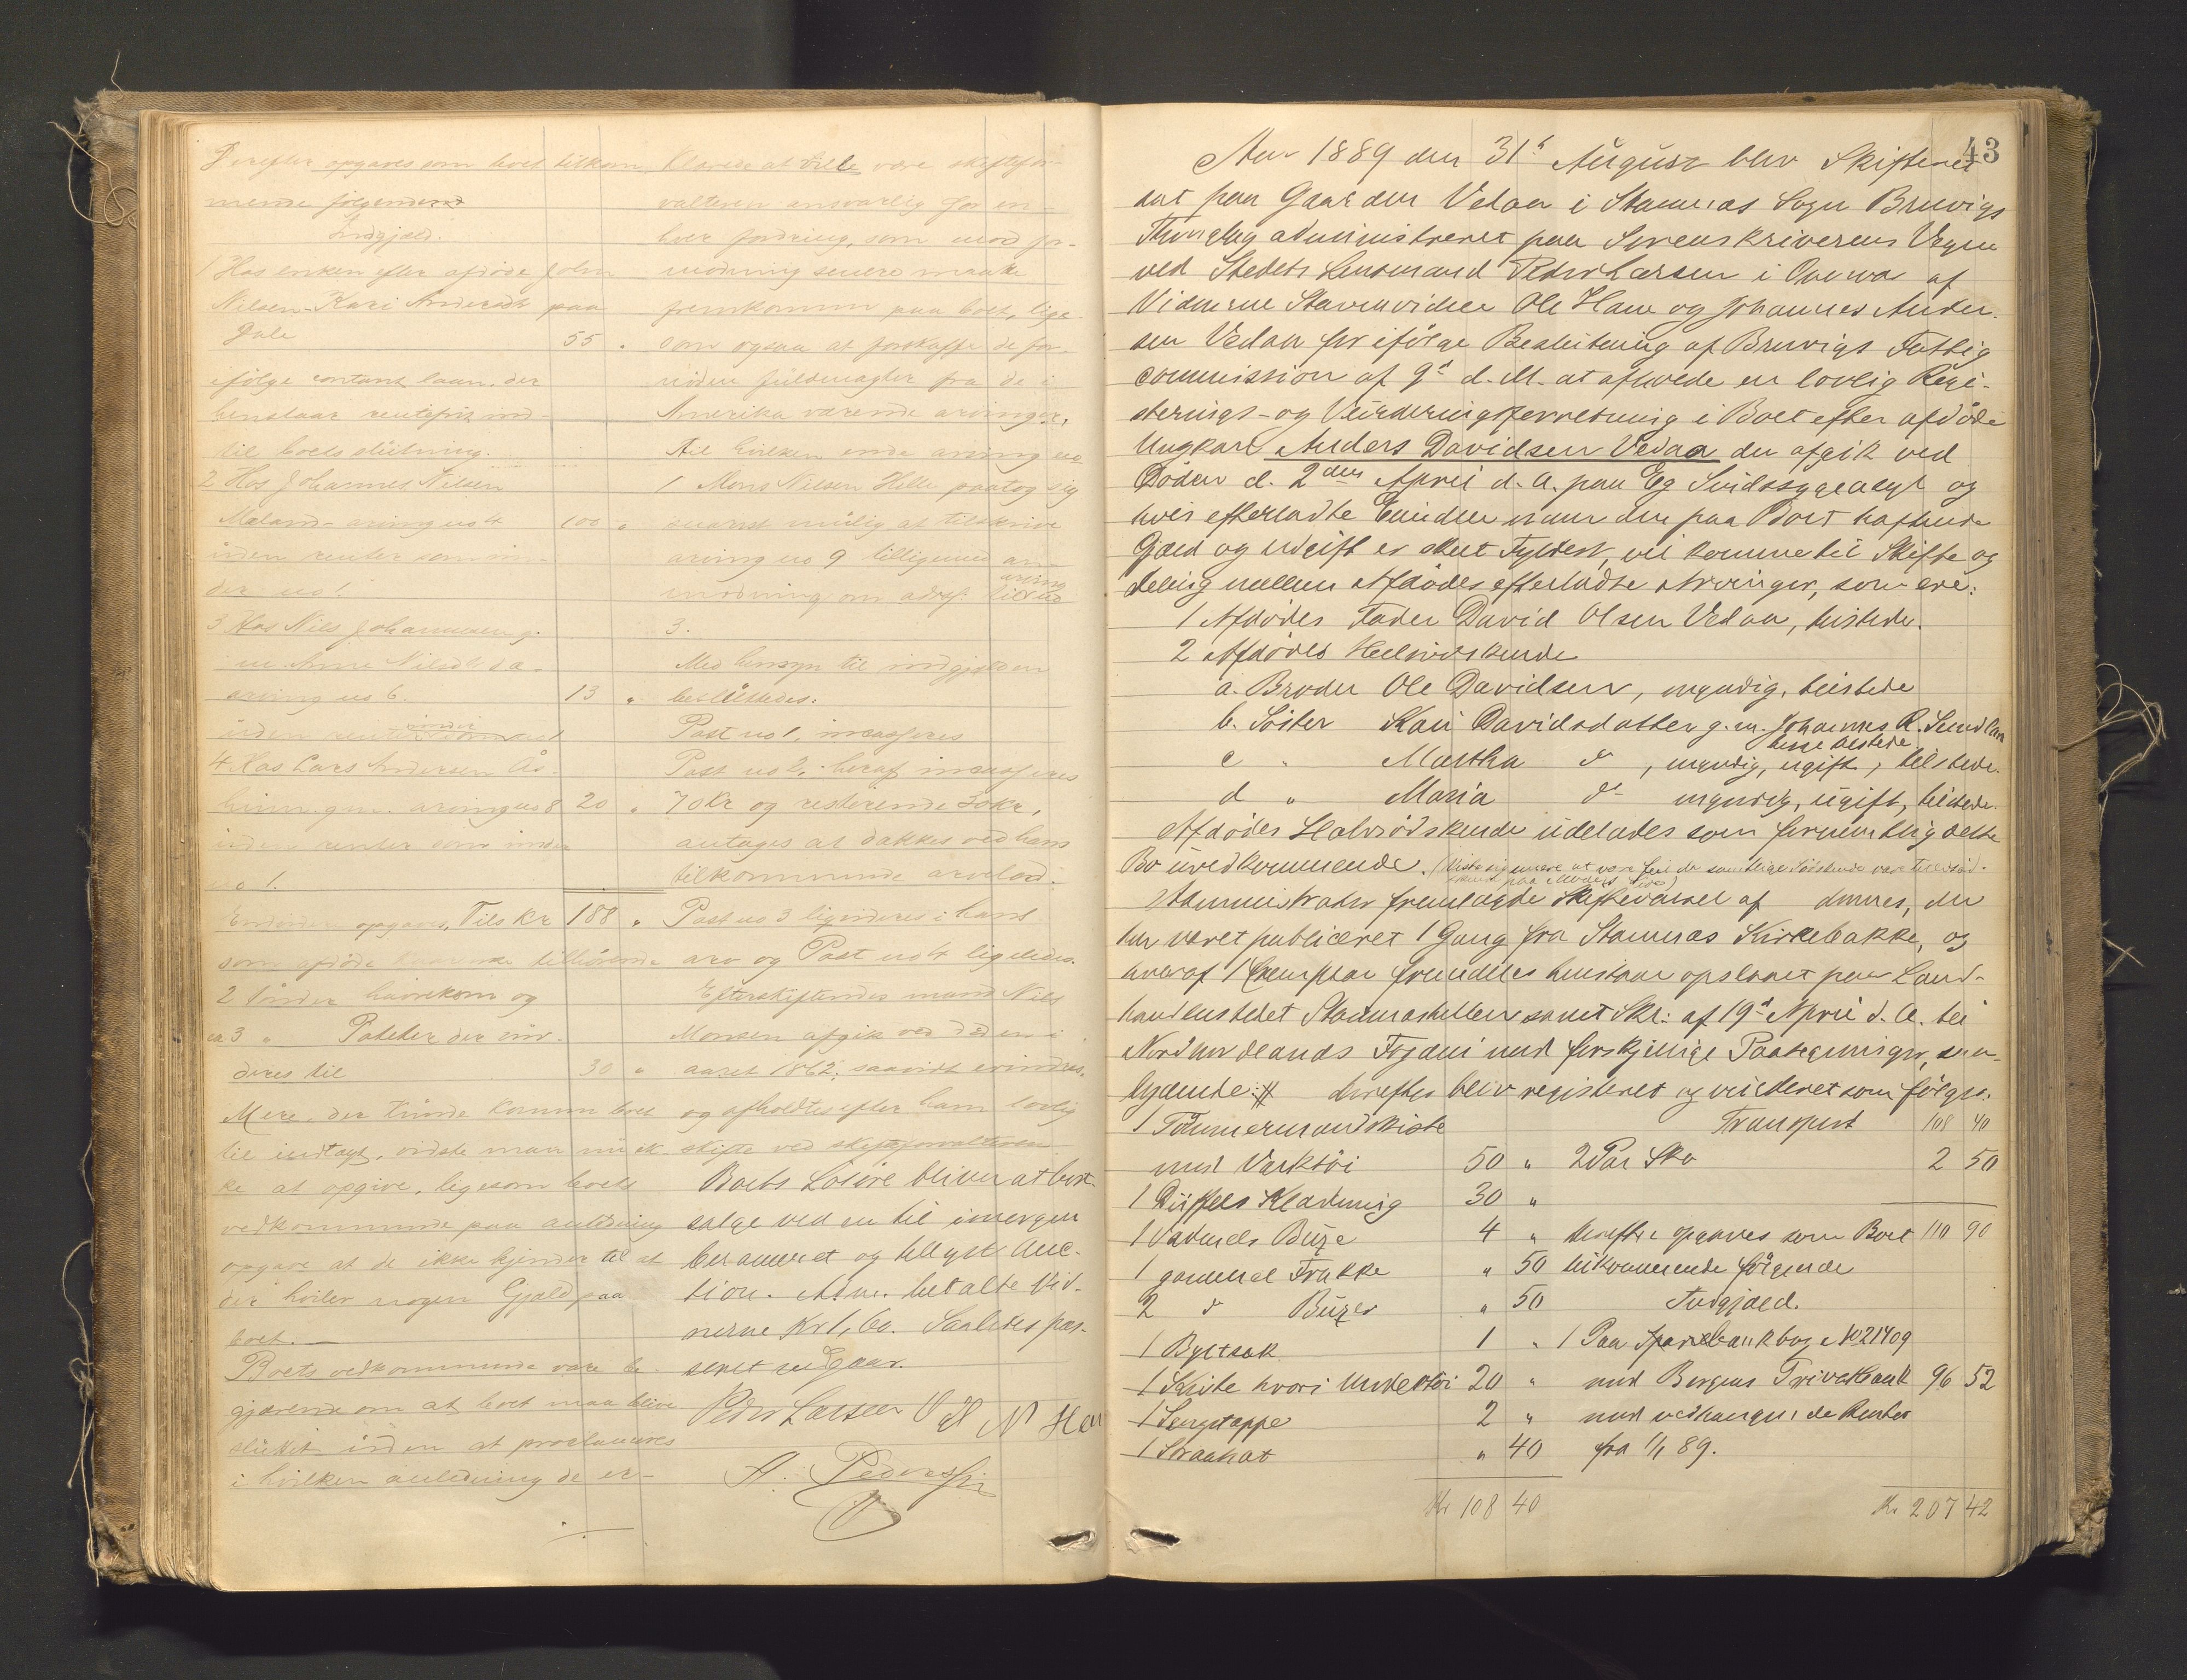 Derefter opgaves som boet tilkom
mende følgende
Indgjæld.
1 Hos enken efter afdøde John
Nilsen - Kari Andersdt paa
Dale 55 "
ifølge contant laan, der
henstaar rentefrit ind-
til boets slutning.
2 Hos Johannes Nilsen
Mæland - arving no 4 100 "
uden renter som un-
der no 1
3 Hos Nils Johannesen g.
m. Anne Nilsdt
arving no 6. 13 "
uden renter som under no 1
4. Hos Lars Andersen Ås-
heim g.m. arving no 8 20 "
uden renter som under
no 1.
Endvidere opgaves, Tils Kr 188 "
som afdøde tilhørende
2 tønder havrekorn og
ca 3 " Poteter der vur-
deres til 30 "
Mere, der kunde komme boet
til indtægt, vidste man nu ik-
ke at opgive, ligesom boets
vedkommende paa anledning
opgave at de ikke kjender til at
der hviler nogen Gjæld paa
boet.
Boets vedkommende vare be-
gjærende om at boet maa blive
sluttet uden at proclameres
i hvilken anledning de er-
klærede at ville være skiftefor-
valteren ansvarlig for en-
hver fordring, som mod for-
modning senere maatte
fremkomme paa boet, lige-
som ogsaa at forskaffe de for-
nødne fuldmagter fra de i
Amerika værende arvinger,
til hvilken ende arving no
1 Mons Nilsen Helle paatog sig
snarest mulig at tilskrive
arving no 9 tilligemed an-
modning om adrs: til arving no
3.
Med hensyn til indgjælden
besluttedes:
Post no 1, incasseres
Post no 2, heraf incasseres
70 Kr og resterende 30 kr,
antages at dækkes ved hans
tilkommende arvelod.
Post no 3 ligvideres i hans
arv og Post no 4 ligeledes.
Efterskiftendes mand Nils
Monsen afgik ved døden i
aaret 1862, saavidt erindres,
og afholdtes efter ham lovlig
skifte ved skifteforvalteren
Boets Løsøre bliver at bort-
sælge ved en til imorgen
berammet og tillyst Auc-
tion. Adm. betalte Vid-
nerne Kr 1,60. Saaledes pas-
seret udgaar.
Peder Larsen O N Han
A. Pederssen
43
Aar 1889 den 31t August blev Skifteret
sat paa Gaarden Vedaa i Stamnæs Sogn Bruvigs
Thinglag administreret paa Sorenskriverens Vegne
ved Stedets Lensmand Peder Larsen i af
Vidnerne Stævnevidne Ole Hane og Johannes Ander-
sen Vedaa for ifølge Beslutning af Bruvigs Fattig
commission af 9d d. M. at afholde en lovlig Regi-
sterings- og Vurderingsforretning i Boet efter afdøde
Ungkarl Anders Davidsen Vedaa der afgik ved
Døden d. 2den April d. A. paa Eg Sindssygeasyl og
hvis efterladte Eiendele naar den paa Boet haftende
Gjæld og udgift er skeet Fyldest, vil komme til Skifte og
deling mellem Afdødes efterladte Arvinger, som ere:
1 Afdødes Fader David Olsen Vedaa, tilstede.
2 Afdødes Helsødskende
a. Broder Ole Davidsen, myndig, tilstede
b. Søster Kari Davidsdatter g.m. Johannes R. Sundland
begge tilstede
c " Martha do, myndig, ugift, tilstede.
d " Maria do myndig, ugift, tilstede.
Afdødes Halvsødskende udelades som formentlig dette
Bo uvedkommende. (Viste sig senere at være feil da samtlige Sødskende vare Helsød-
skende paa Moders Side)
Administrator fremlagde Skiftevarsel af dennes, der
har været publiceret 1 Gang fra Stamnæs Kirkebakke, og
hvoraf 1 Exemplar fremdeles henstaar opslaaet paa Land-
handlerstedet Stamneshellen samt Skr: af 19d April d. A. til
Nordhordlands Fogderi med forskjellige Paategninger, saa-
lydende: # derefter blev registeret og vurderet som følger.
1 Tømmermandskiste
med Værktøi 50 "
1 Düffels Klædning 30 "
1 Vadmels Buxe 4 "
1 gammel Frakke " 50
2 do Buxer " 50
1 Byltsæk 1 "
1 Kiste hvori Undertøi 20 "
1 Sengetæppe 2 "
1 Straahat " 40
Kr 108 40
Transport 108 40
2 Par Sko 2 50
derefter opgaves som Boet 110 90
tilkommende følgende
Indgjæld.
1 Paa Sparebankbog No 21409
med Bergens Privatbank 96 52
med vedhængende Renter
fra 1/1 89.
Kr 207 42